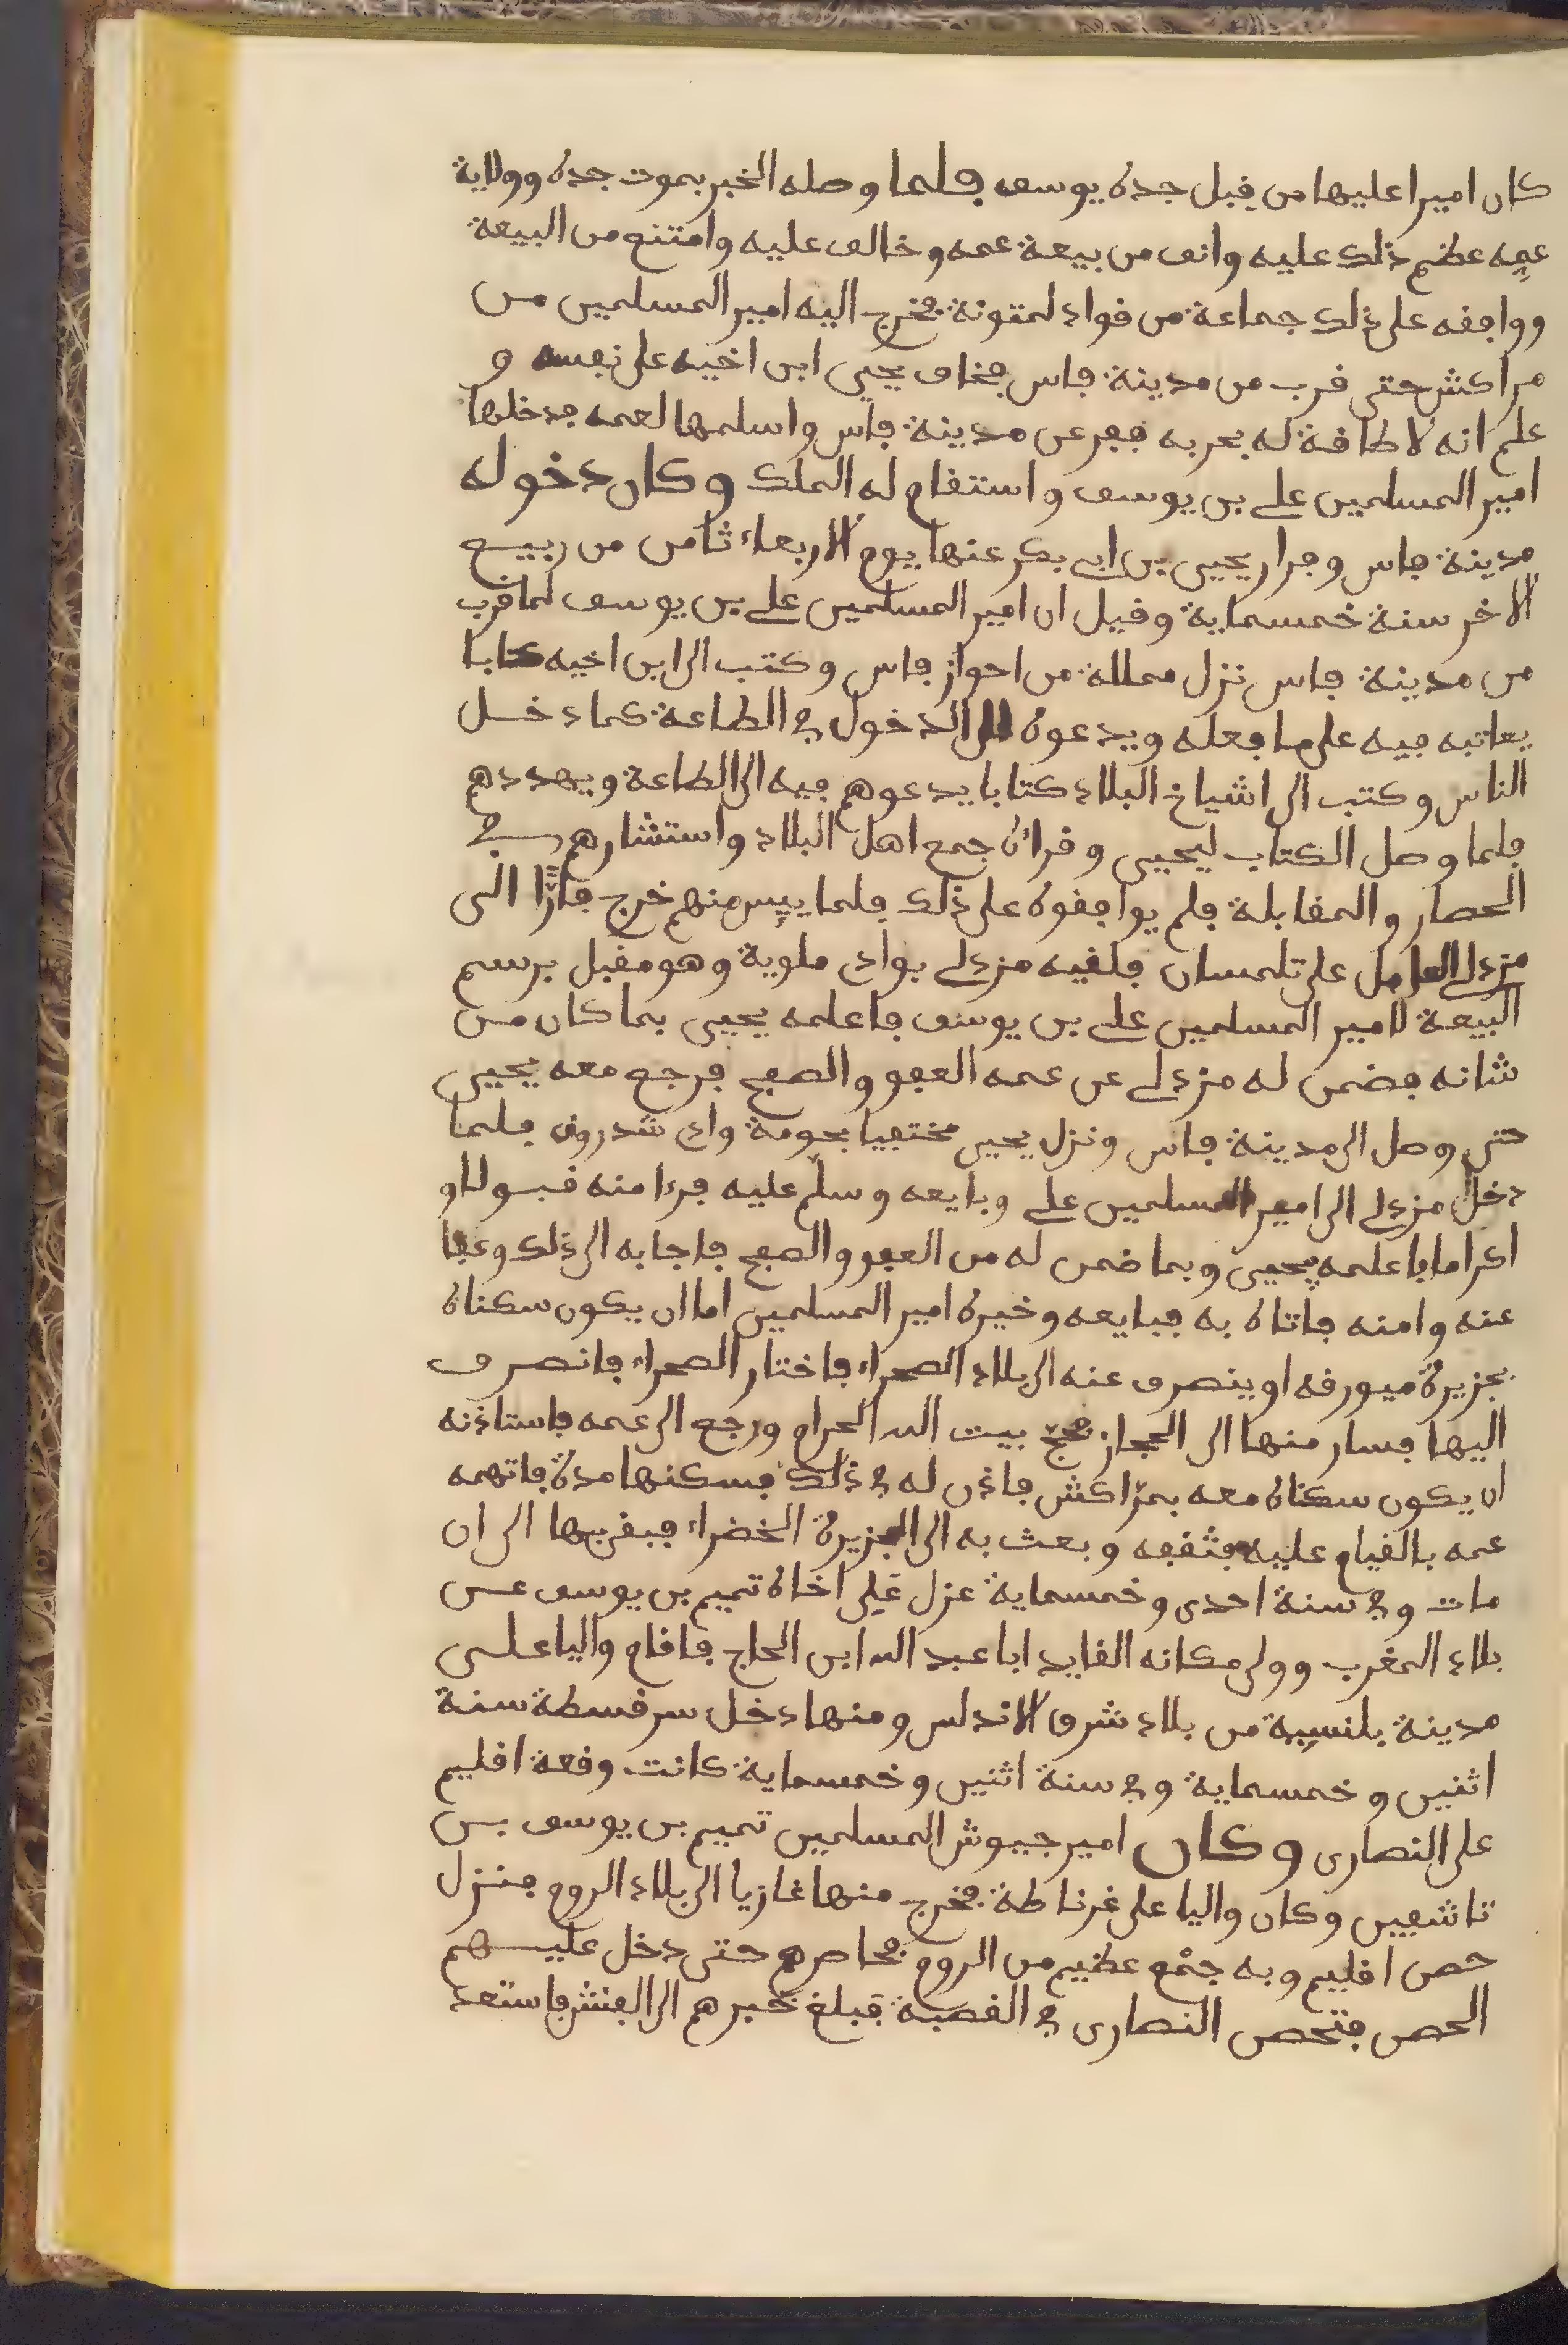 كان اميرا عليها من قبل جده يوسف فلما وصله الخبر بموت جده وولاية
عمه عظم ذلك عليه وانف من بيعة عمه وخالف عليه وامتنع من البيعة
ووافقه على ذلك جماعة من قواد لمتونة فخرج اليه امير المسلمين من
مراكش حتى قرب من مدينة فاس فخاف يحيى ابن اخيه على نفسه و
علم انه لا طاقة له بحربه ففر عن مدينة فاس واسلمها لعمه فدخلها
امير المسلمين علي بن يوسف واستقام له الملك وكان دخوله
مدينة فاس وفرار يحيى بن ابي بكر عنها يوم الاربعاء ثامن من ربيع
الاخر سنة خمسماية وقيل ان امير المسلمين علي بن يوسف لما قرب
من مدينة فاس نزل محلة من احواز فاس وكتب الى ابن اخيه كتابا
يعاتبه فيه على ما فعله ويدعوه الى الدخول في الطاعة كما دخل
الناس وكتب الى اشياخ البلاد كتابا يدعوهم فيه الى الطاعة ويهددهم
فلما وصل الكتاب ليحيى وقراه جمع اهل البلاد واستشارهم في
الحصار والمقابلة فلم يوافقوه على ذلك فلما ييس منهم خرج فارًّا الى
مزدلي العامل على تلمسان فلقيه مزدلي بوادي ملوية وهو مقبل برسم
البيعة لامير المسلمين علي بن يوسف فاعلمه يحيى بما كان من
شانه فضمن له مزدلي عن عمه العفو والصفح فرجع معه يحيى
حتى وصل الى مدينة فاس ونزل يحيى مختفيا بحومة وادي شدروق فلما
دخل مزدلي الى امير المسلمين علي وبايعه وسلم عليه فرءا منه قبولا و
اكراما فاعلمه بيحيى وبما ضمن له من العفو والصفح فاجابه الى ذلك وعفا
عنه وامنه فاتاه به فبايعه وخيره امير المسلمين اما ان يكون سكناه
بجزيرة ميورقه او ينصرف عنه الى بلاد الصحراء فاختار الصحراء فانصرف
اليها فسار منها الى الحجاز فحجّ بيت الله الحرام ورجع الى عمه فاستاذنه
ان يكون سكناه معه بمرّاكش فاذن له في ذلك فسكنها مدة فاتهمه
عمه بالقيام عليه فثقفه وبعث به الى الجزيرة الخضراء فبقي بها الى ان
مات وفي سنة احدى وخمسماية عزل علي اخاه تميم بن يوسف عن
بلاد المغرب وولى مكانه القايد ابا عبد الله ابن الحاج فاقام واليا على
مدينة بلنسية من بلاد شرق الاندلس ومنها دخل سرقسطة سنة
اثنين وخمسماية وفي سنة اثنين وخمسماية كانت وقعة اقليم
على النصارى وكان امير جيوش المسلمين تميم بن يوسف بن
تاشفين وكان واليا على غرناطة فخرج منها غازيا الى بلاد الروم فنزل
حصن اقليم وبه جمْع عظيم من الروم فحاصرهم حتى دخل عليهم
الحصن فتحصن النصارى في القصبة فبلغ خبرهم الى الفنش فاستعد